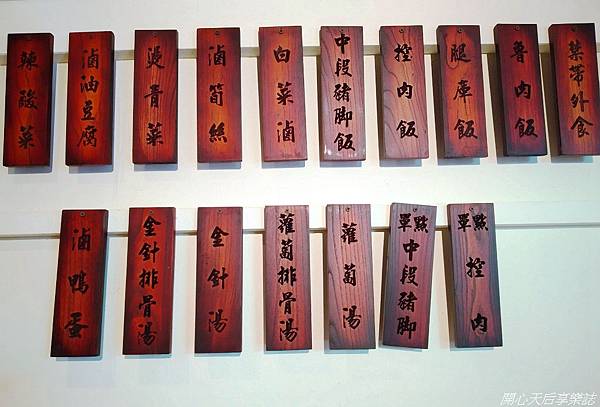 禁帶外食
魯肉飯
腿庫飯
控肉飯
中段豬脚飯
白菜滷
滷筍絲
燙青菜
滷油豆腐
辣酸菜
單點控肉
單點中段豬脚
蘿蔔湯
蘿蔔排骨湯
金針湯
金針排骨湯
滷鴨蛋
開心天后享樂誌